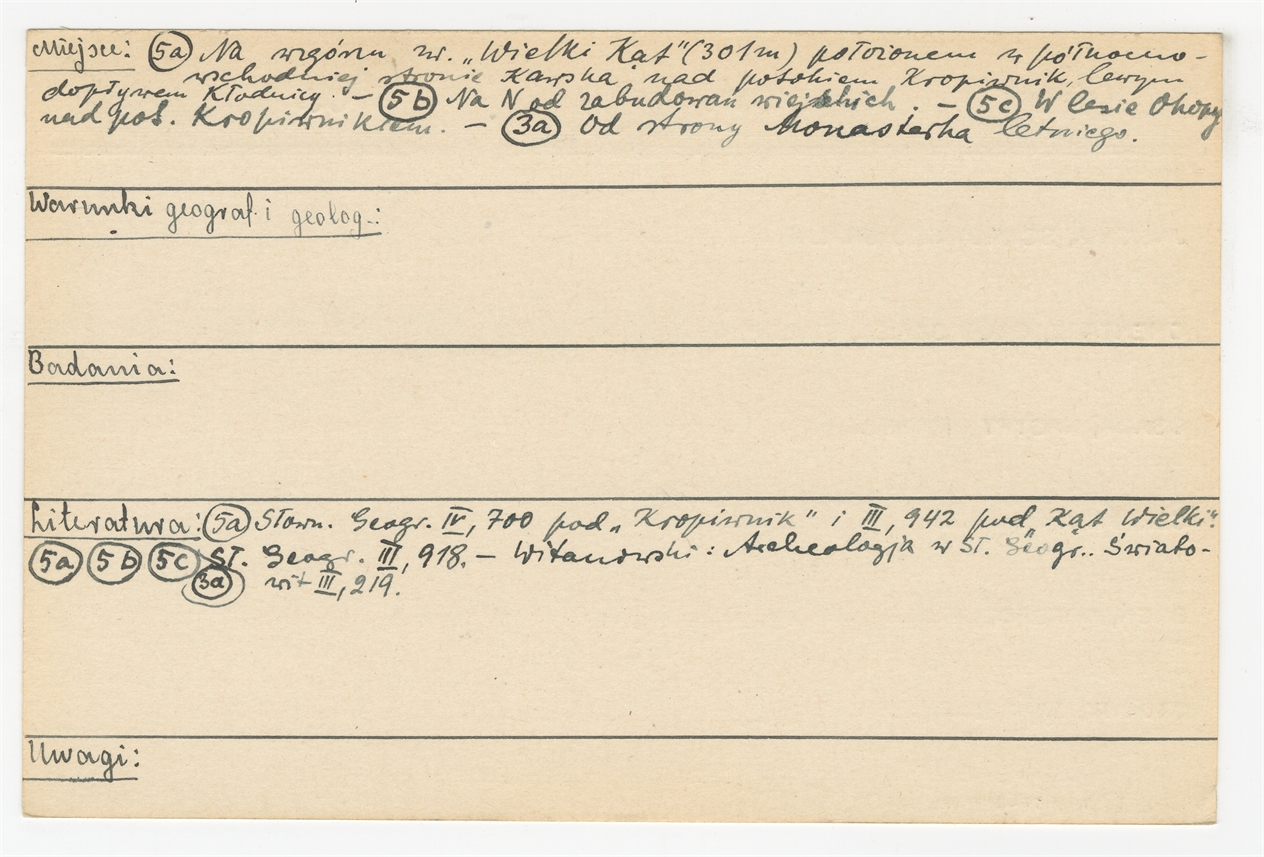 Miejsce: (5a) Na wzgórzu zw. „Wielki Kąt" (301m) położonem w północno-
wschodniej stronie Kawska nad potokiem Kropiwnik, lewym
dopływem Kłodnicy. – (5b) Na N od zabudowań wiejskich. – (5c) W lesie Okopy
nad pot. Kropiwnikiem. – (3a) Od strony Monasterka letniego.
Warunki geograf. i geolog.:
Badania:
Literatura: (5a) Słown. Geogr. IV, 700 pod „Kropiwnik" i III, 942 pod „Kąt Wielki".
(5a) (5b) (5c) Sł. Geogr. III, 918. – Witanowski: Archeologja w Sł. Geogr.. Świato-
(3a) wit III, 219.
Uwagi: